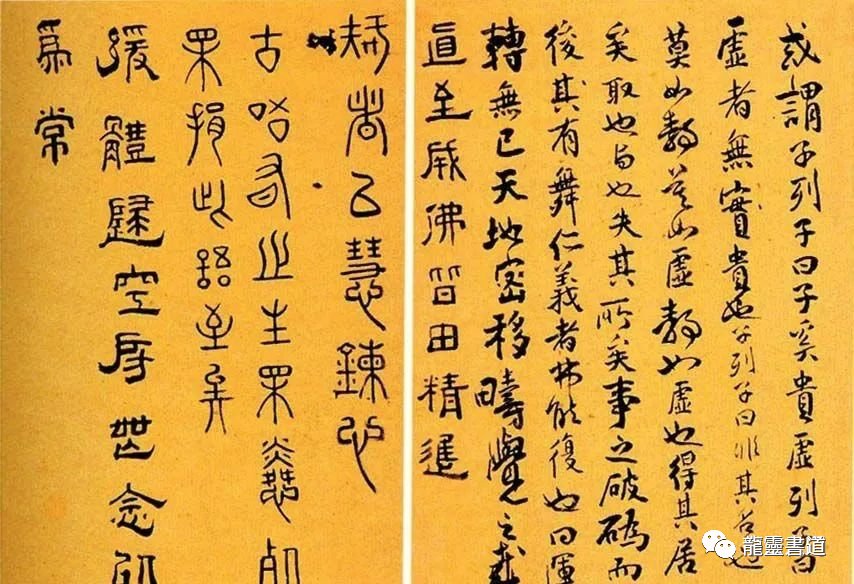 或謂子列子曰子奚貴虛列子曰
虛者無實貴也子列子曰非其名也
莫如靜莫如虛靜如虛也得其居
矣取也与也失其所矣事之破碼而
後其有舞仁義者弗能復也曰運
轉無已天地密移疇覺之哉
眞至成佛皆由精進
者以慧鍊心
古之生
損此語至
緩體空世念
為常
龍靈書道